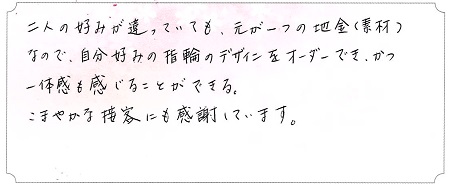 二人の好みが違っていても、元が一つの地金(素材)
なので、自分好みの指輪のデザインをオーダーでき、かつ
一体感も感じることができる。
こまやかな接客にも感謝しています。